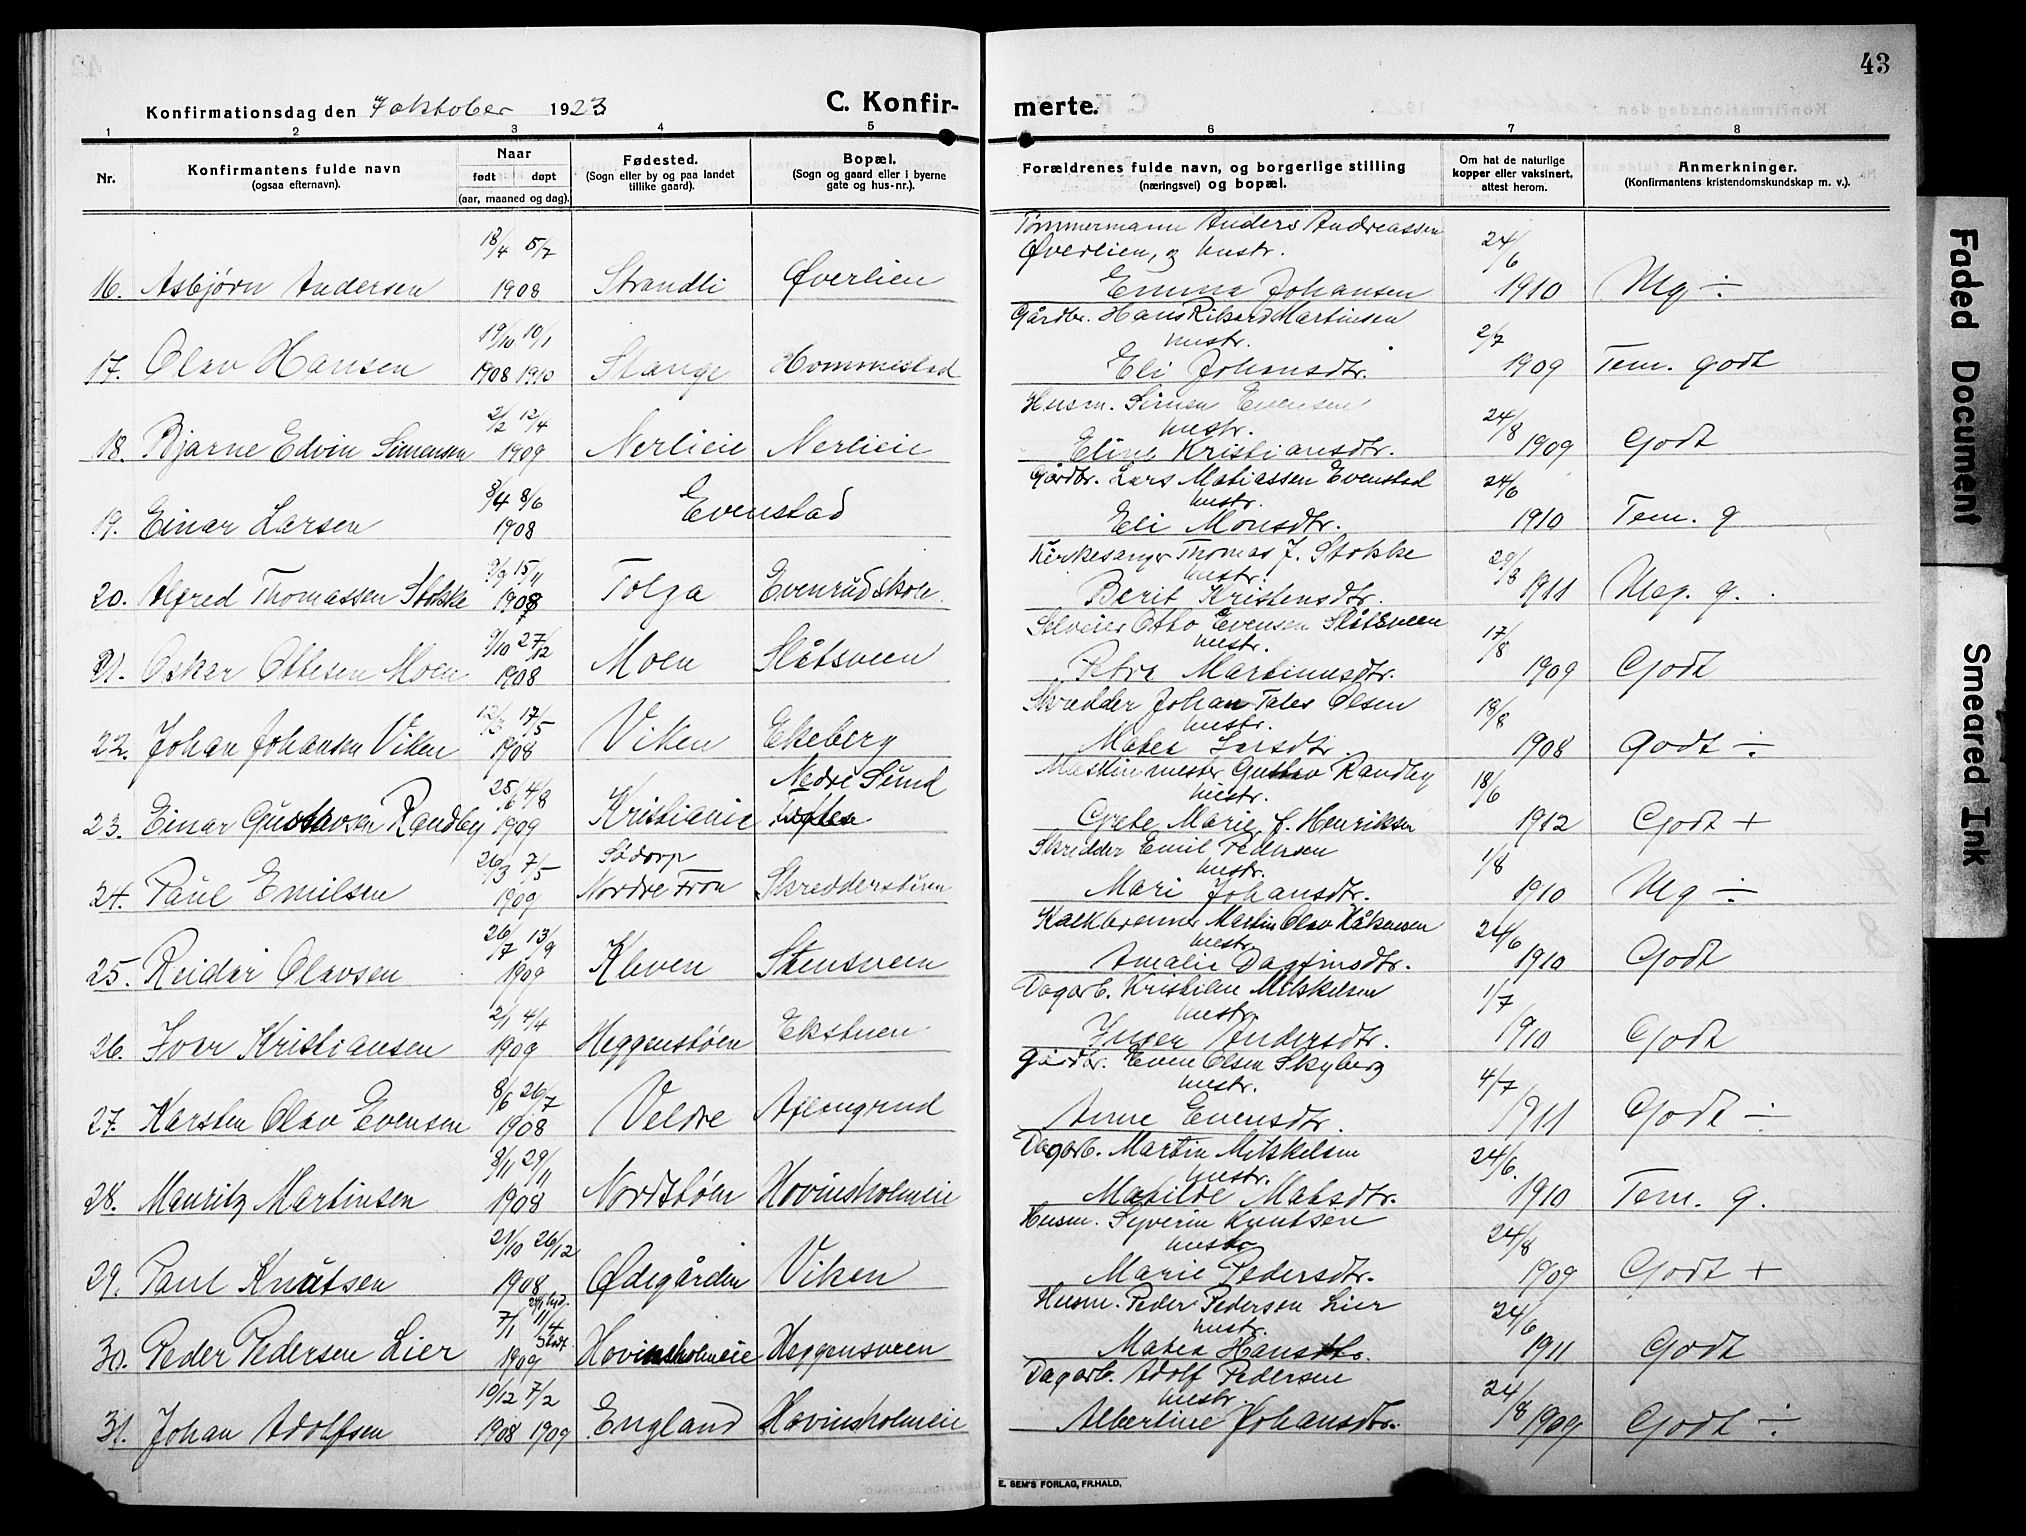 43
Konfirmationsdag den 7 oktober 1923
C. Konfirmerte.
1 2 3 4 5 6 7 8
Nr.
Konfirmantens fulde navn
(ogsaa efternavn).
Naar
født døpt
(aar, maaned og dag).
Fødested.
(Sogn eller by og paa landet
tillike gaard).
Bopæl.
(Sogn og gaard eller i byerne
gate og hus-nr.).
Forældrenes fulde navn, og borgerlige stilling
(næringsvei) og bopæl.
Om hat de naturlige
kopper eller vaksinert,
attest herom.
Anmerkninger.
(Konfirmantens kristendomskundskap m. v.).
Tømmermann Anders Andreassen
18/4 5/7 Øverlien, og hustr. 24/6
16. Asbjørn Andersen 1908 Strandli Øverlien Emma Johansen 1910 Mg ÷
19/10 10/1 Gårdbr. Hans Rikard Martinsen hustr. 2/7
17. Olav Hansen 1908 1910 Stange Hommestad Eli Johansdtr. 1909 Tem. godt
2/2 12/4 Husm. Simen Evensen hustr. 24/8
18. Bjarne Edvin Simensen 1909 Nerlieie Nerlieie Eline Kristiansdtr. 1909 Godt
3/4 8/6 Gårdbr. Lars Matiassen Evenstad hustr. 24/6
19. Einar Larsen 1908 Evenstad Eli Monsdtr. 1910 Tem. g
9/9 15/11 Kirkesanger Thomas J. Stokke hustr. 29/3
20. Alfred Thomassen Stokke 1908 Tolga Evenrud skole Berit Kristensdtr. 1911 Meg. g.
9/10 27/12 Selveier Otto Evensen Slåtsveen hustr. 17/8
21. Oskar Ottesen Moen 1908 Moen Slåtsveen Petra Martinusdtr. 1909 Godt
12/3 17/5 Skrædder Johan Olsen hustr. 18/8
22. Johan Johansen Viken 1908 Viken Ekeberg Matea Larsdtr. 1908 Godt ÷
25/6 4/8 Nedre Sund Maskinmester Gustav Randby hustr. 18/6
23. Einar Gustavsen Randby 1909 Kristiania Grete Marie f. Henriksen 1912 Godt +
26/3 7/5 Sødorp Skredder Emil Pedersen hustr. 1/8
24. Paul Emilsen 1909 Nordre Fron Skredderstuen Mari Johansdtr. 1910 Mg ÷
26/7 13/9 Kalkbrenner Martin Olav Håkensen hustr. 24/6
25. Reidar Olavsen 1909 Kleven Stensveen Amalie Dagfinsdtr. 1910 Godt
2/1 4/4 Dagarb. Kristian Mikkelsen hustr. 1/7
26. Ivar Kristiansen 1909 Heggenstøen Ekstuen Inger Andersdtr. 1910 Godt
8/6 26/7 gårdbr. Even Olsen Skyberg hustr. 4/7
27. Karsten Olav Evensen 1908 Veldre Aflangrud Anne Evensdtr. 1911 Godt ÷
8/11 29/11 Dagarb. Martin Mikkelsen hustr. 24/6
28. Mauritz Martinsen 1908 Nordstøen Hovinsholmeie Matilde Matsdtr. 1910 Tem. g.
21/10 26/12 Husm. Syverin Knutsen hustr 24/8
29. Paul Knutsen 1908 Ødegården Viken Marie Pedersdtr. 1909 Godt +
7/1 11/4 Husm. Peder Pedersen Lier hustr. 24/6
30. Peder Pedersen Lier 1909 Hovinsholmeie Heggensveen Matea Hansdtr. 1911 Godt
10/12 7/2 Dagarb. Adolf Pedersen hustr. 24/8
31. Johan Adolfsen 1908 1909 England Hovinsholmeie Albertine Johansdtr. 1909 Godt ÷
E. SEM'S FORLAG, FR.HALD.
Faded Document
Smeared Ink